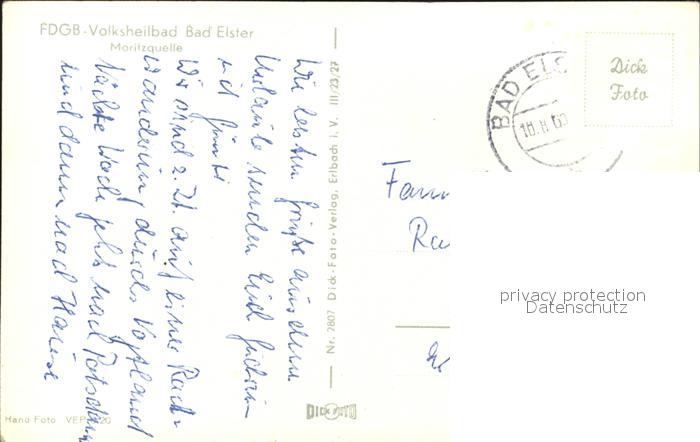 FDGB-Volksheilbad Bad Elster
Moritzquelle
Die besten Grüße aus dem
Urlaub senden Euch
mit Günter
Wir sind z. Zt. auf einer Rad-
wanderung durchs Vogtland
Nächste Woche geht's nach Potsdam
und dann nach Hause
Nr. 2807 Dick-Foto-Verlag, Erlbach i. V. III/23/27
DICK FOTO
Hand Foto VEP 20
BAD ELS
18.8.60
Dick
Foto
Fam
Ra
privacy protection
Datenschutz